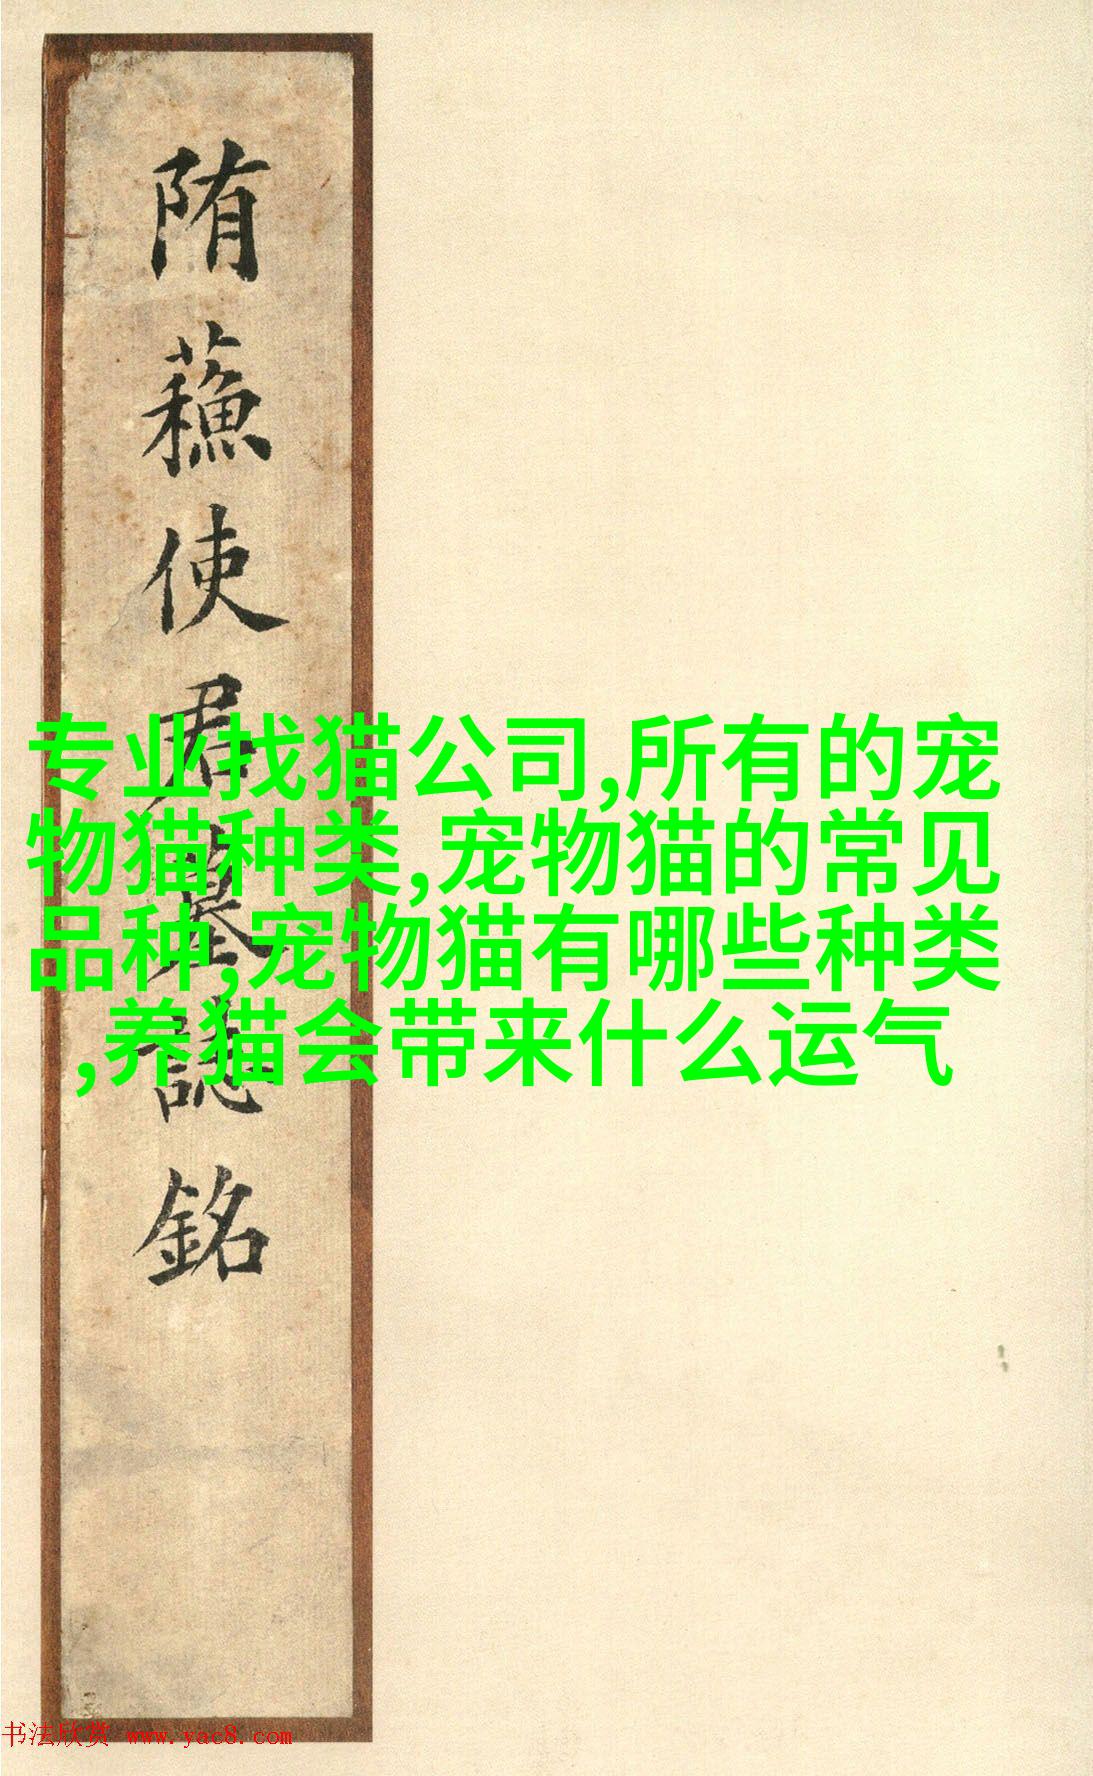 隋蘓使君墓誌銘
专业找猫公司,所有的宠
物猫种类,宠物猫的常见
品种,宠物猫有哪些种类
,养猫会带来什么运气
书法欣赏 www.yac8.com